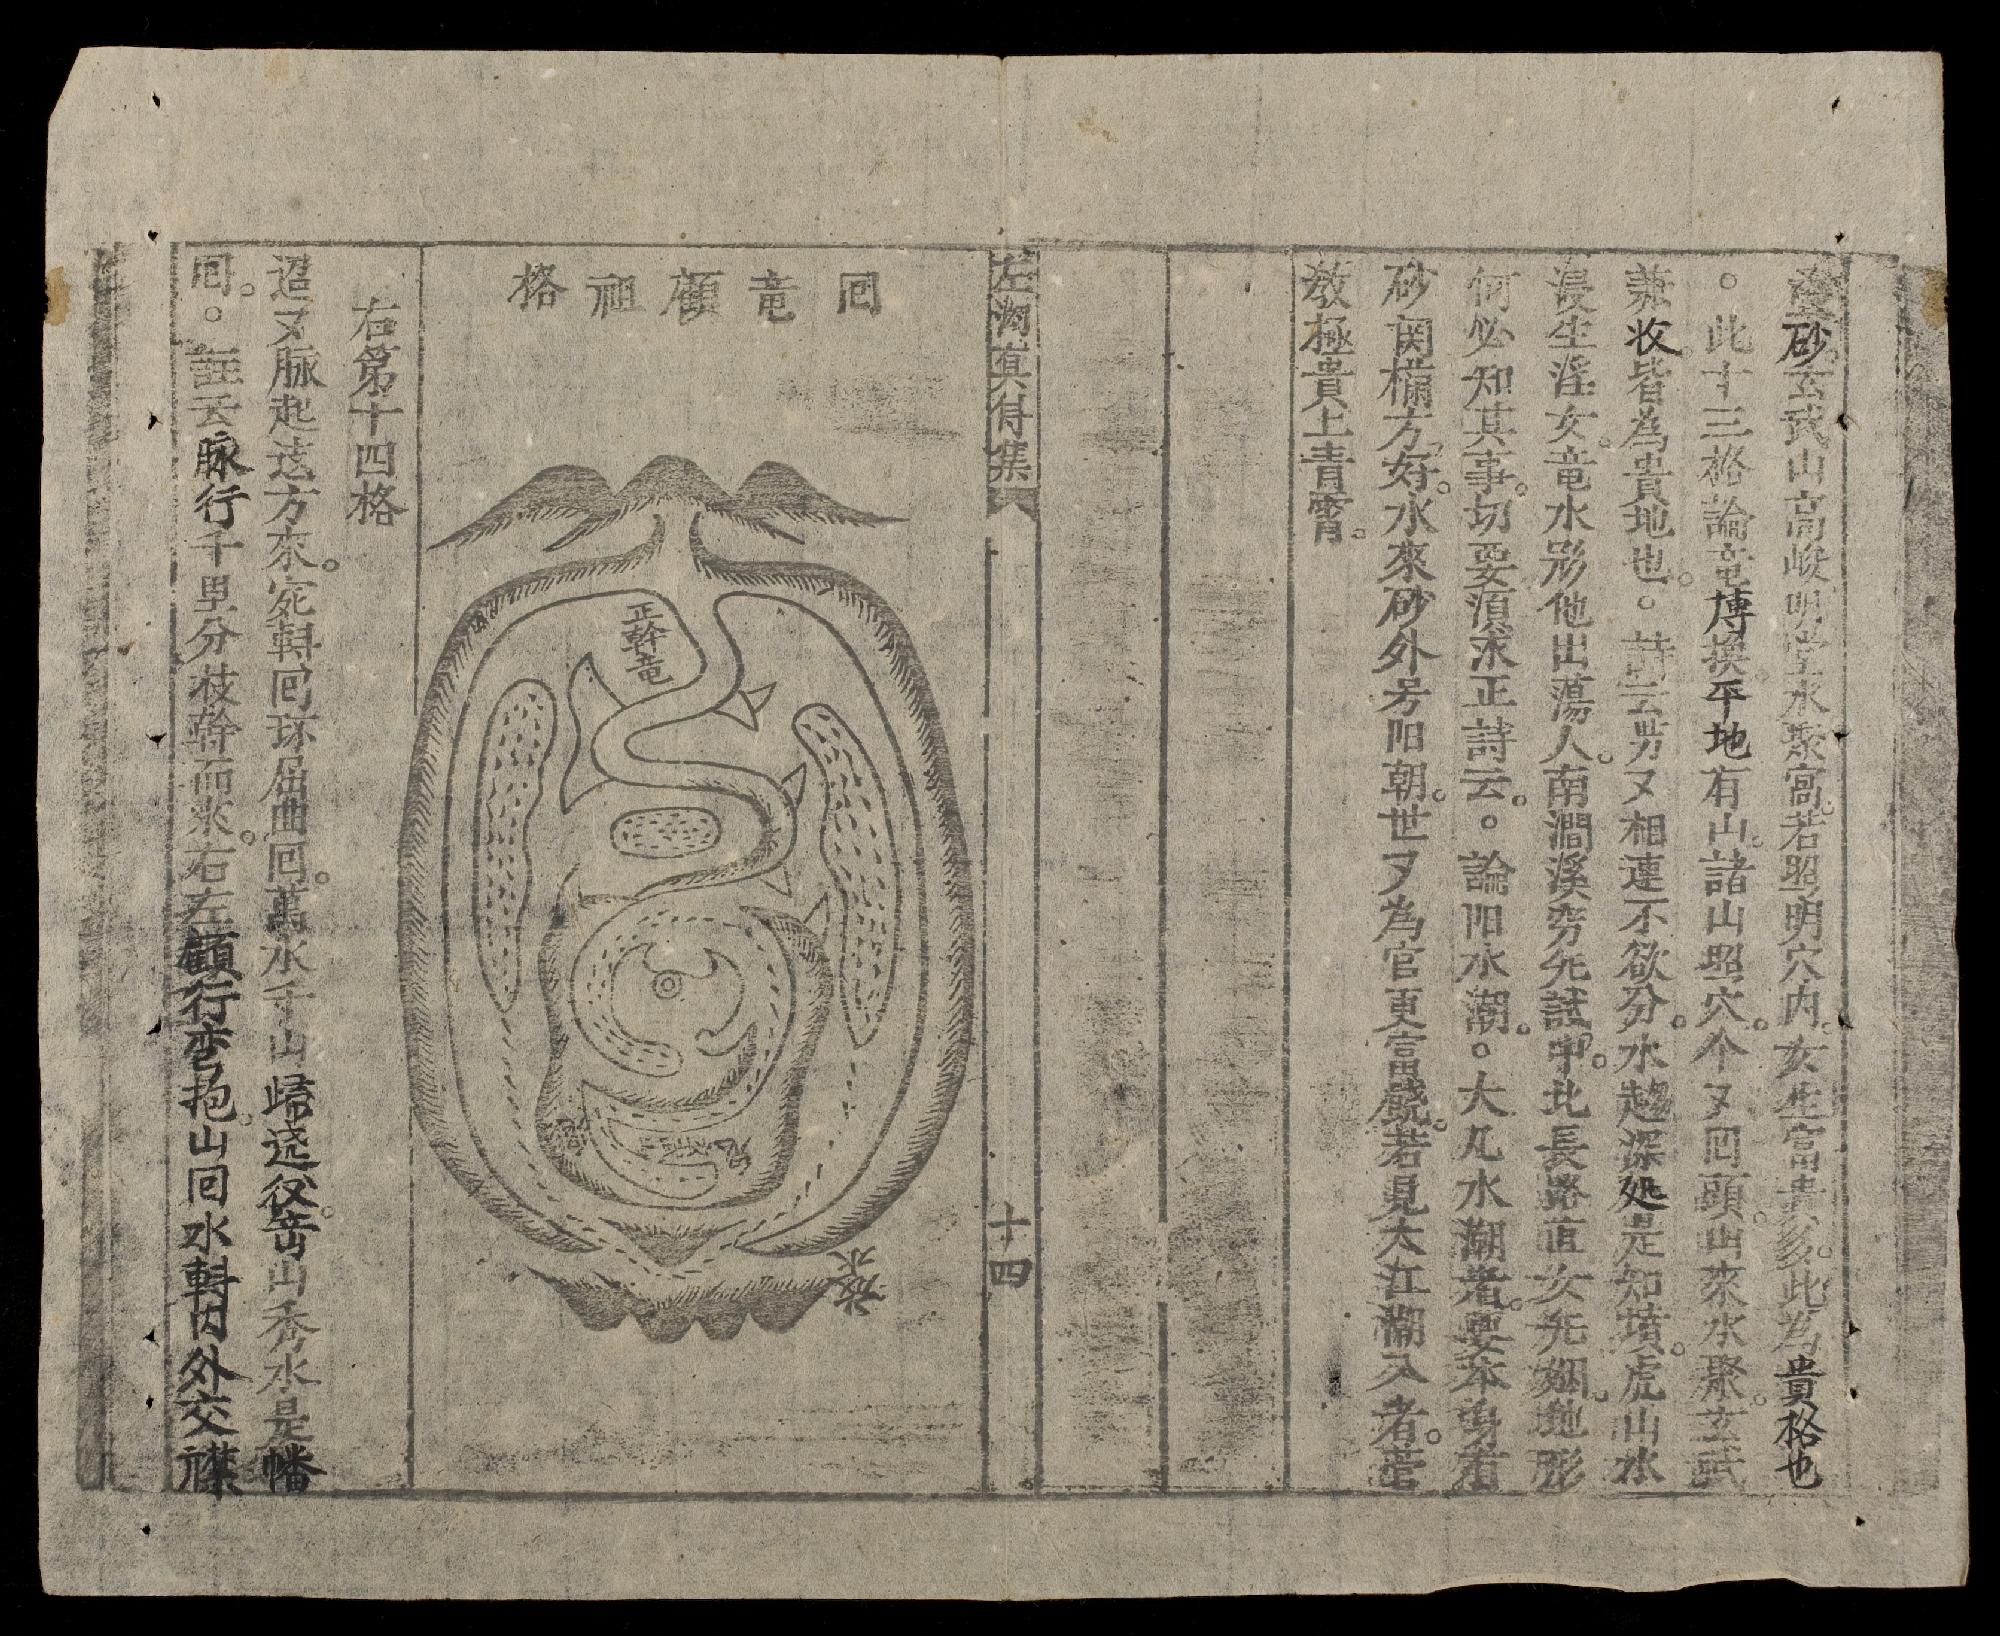 砂。玄武山高峻明堂水聚窩。若照明穴内。女生富貴多。此為貴格也
。此十三格論竜博換平地有山。諸山照穴个又囘頭。山來水聚。玄武
兼收。皆為貴地也。。詩云男又相連不欲分。水趍深処是知墳。虎山水
浸生淫女。竜水形他出蕩人。南澗溪穷先試中。北長路直女先姻。地形
何必知其事。切要湏求正詩云。。論阳水潮。。大凡水潮者。要本身有
砂関欄方好。水來砂外号阳朝。世又為官更富饒。若見大江潮入者。管
教極貴上青霄。
左泑真侍集
十四
囘竜顧祖格
正幹竜
水
右第十四格
迢又脉起迄方來。宛轉囘环屈曲囘。萬水千山歸遶
山秀水是幡
囘。。註云脉行千里分枝幹而來。右左顧行弯抱。山囘水轉内外交襟